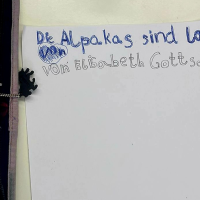 Die Alpakas sind lo
von
von Elisabeth Gotts